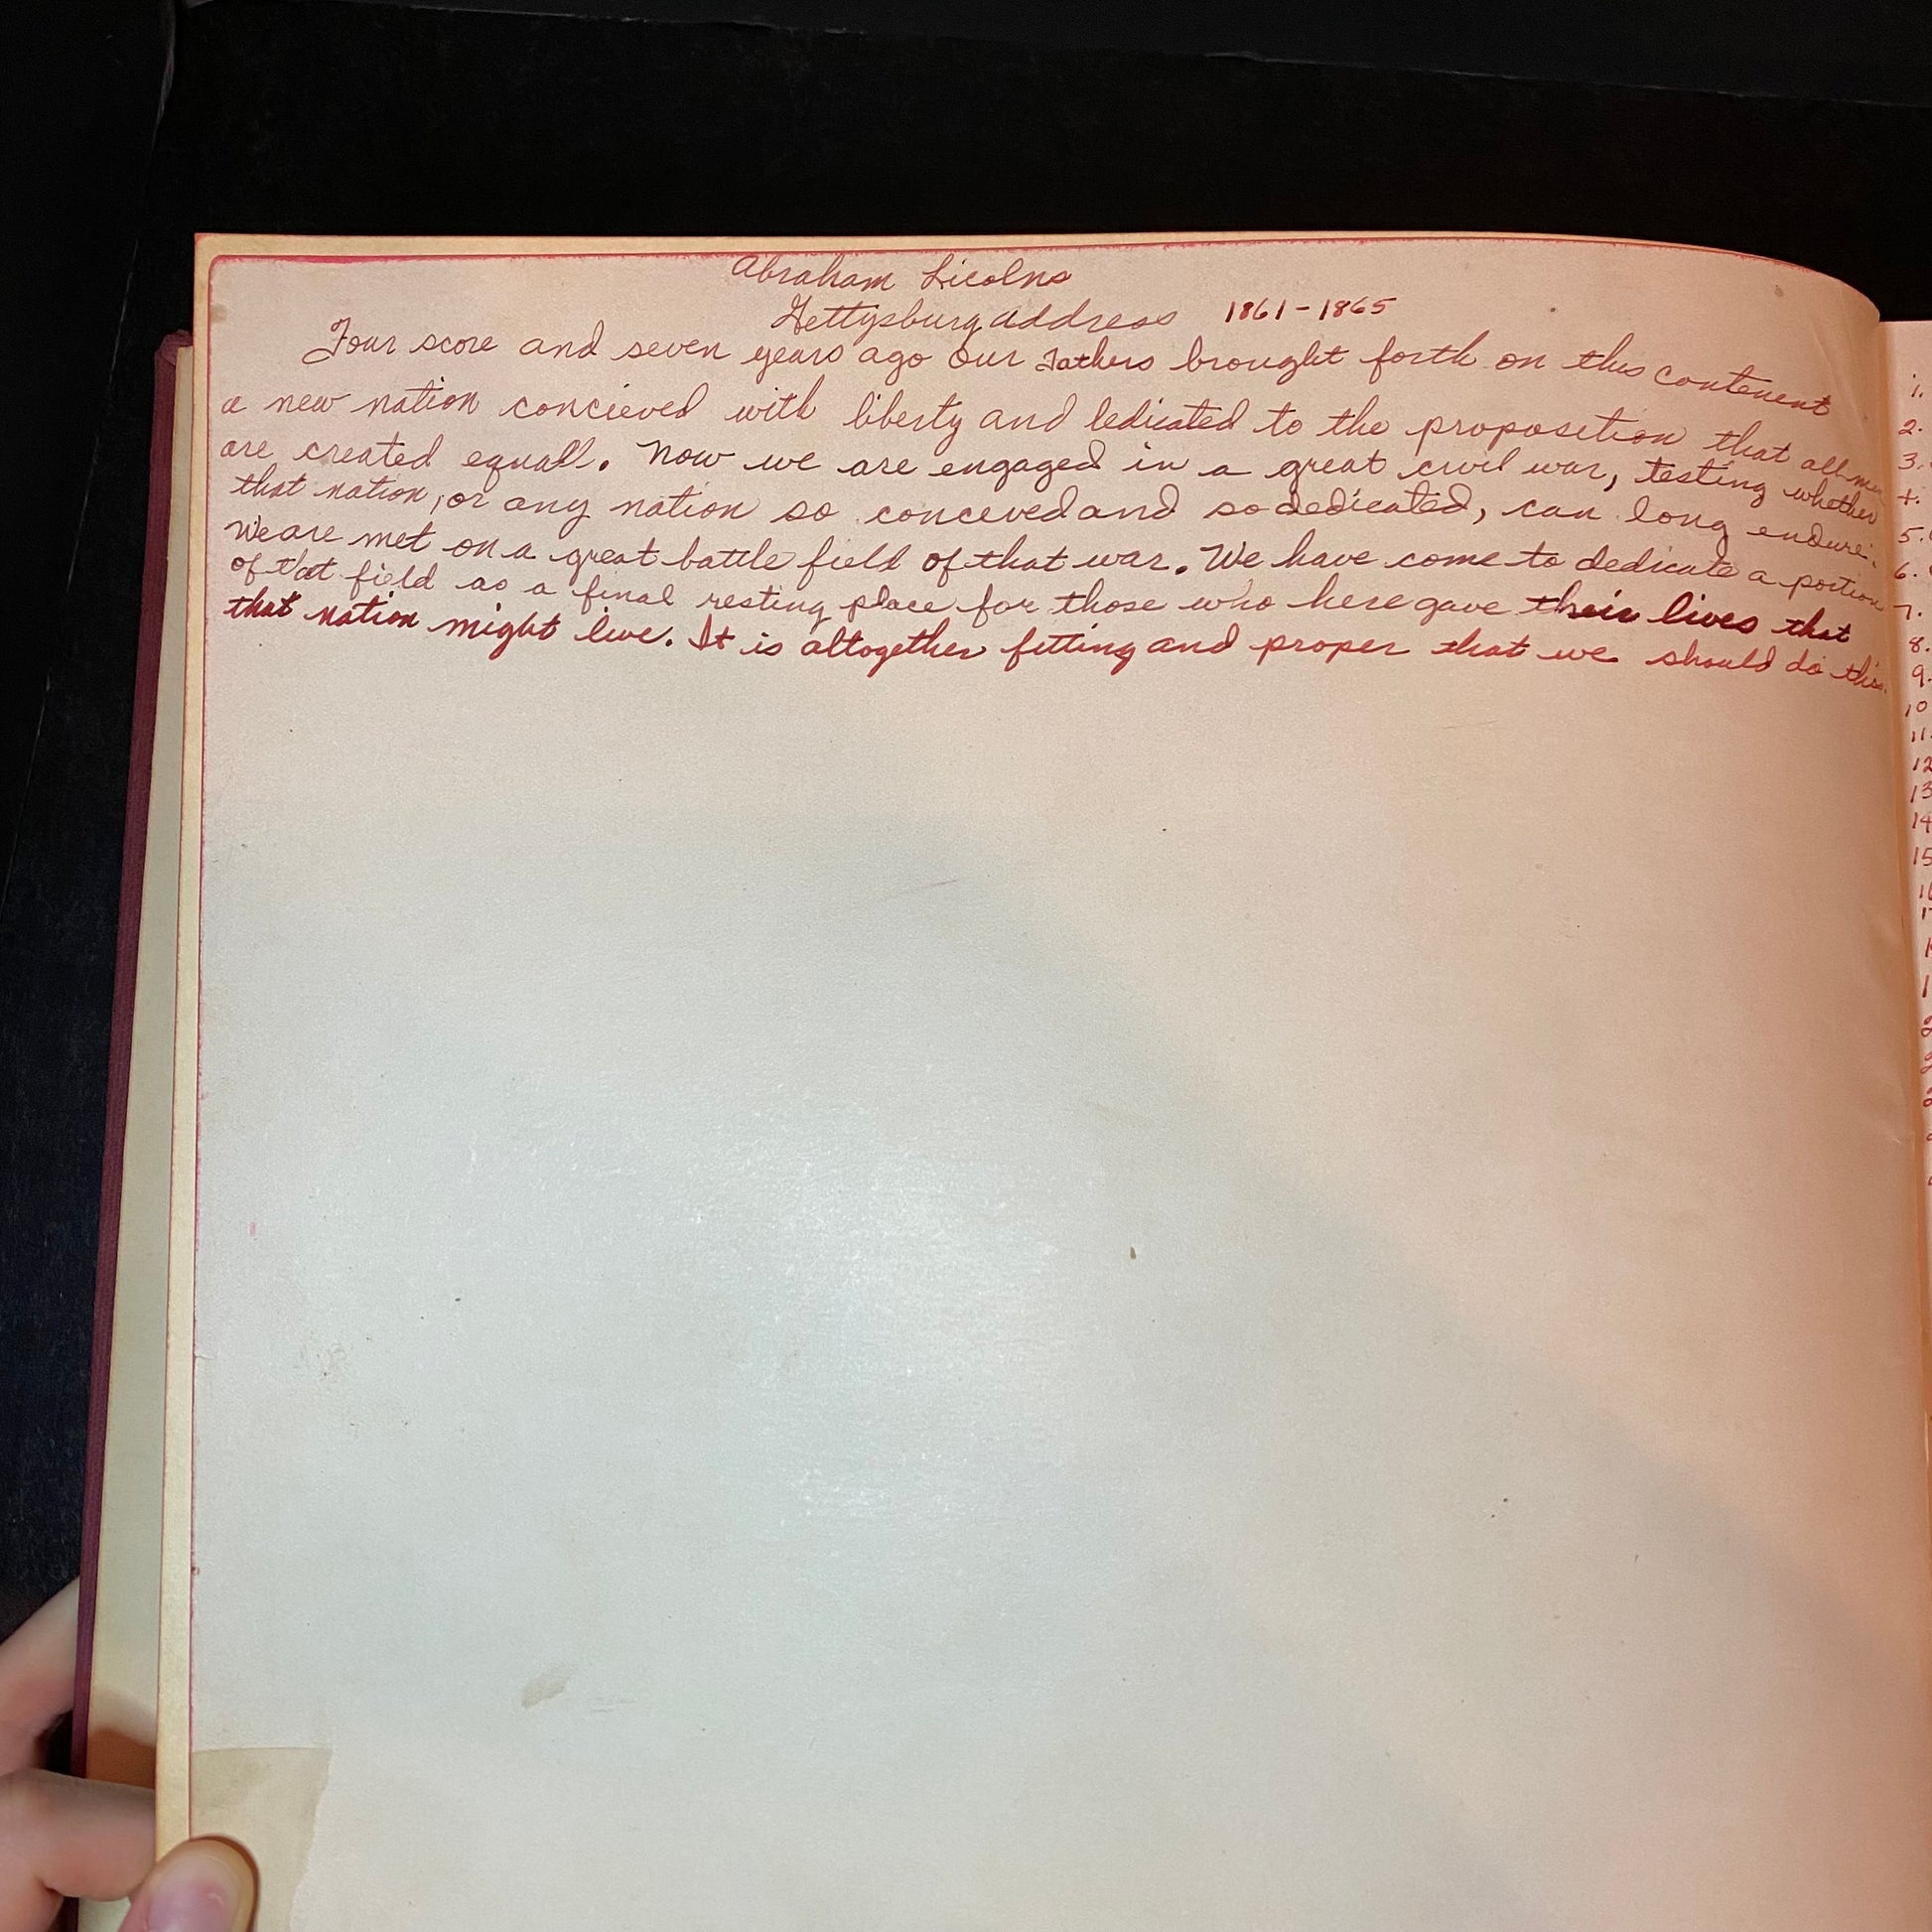 Abraham Licolns
Gettysburg address 1861-1865
Four score and seven years ago our Fathers brought forth on this contenent
a new nation concieved with liberty and dedicated to the proposition that all men
are created equall. Now we are engaged in a great civil war, testing whether
that nation, or any nation so conceved and so dedicated, can long endure.
We are met on a great battle field of that war. We have come to dedicate a portion
of that field as a final resting place for those who here gave their lives that
that nation might live. It is altogether fitting and proper that we should do this.
1.
2.
3.
4.
5.
6.
7.
8.
9.
10
11.
12
13
14
15